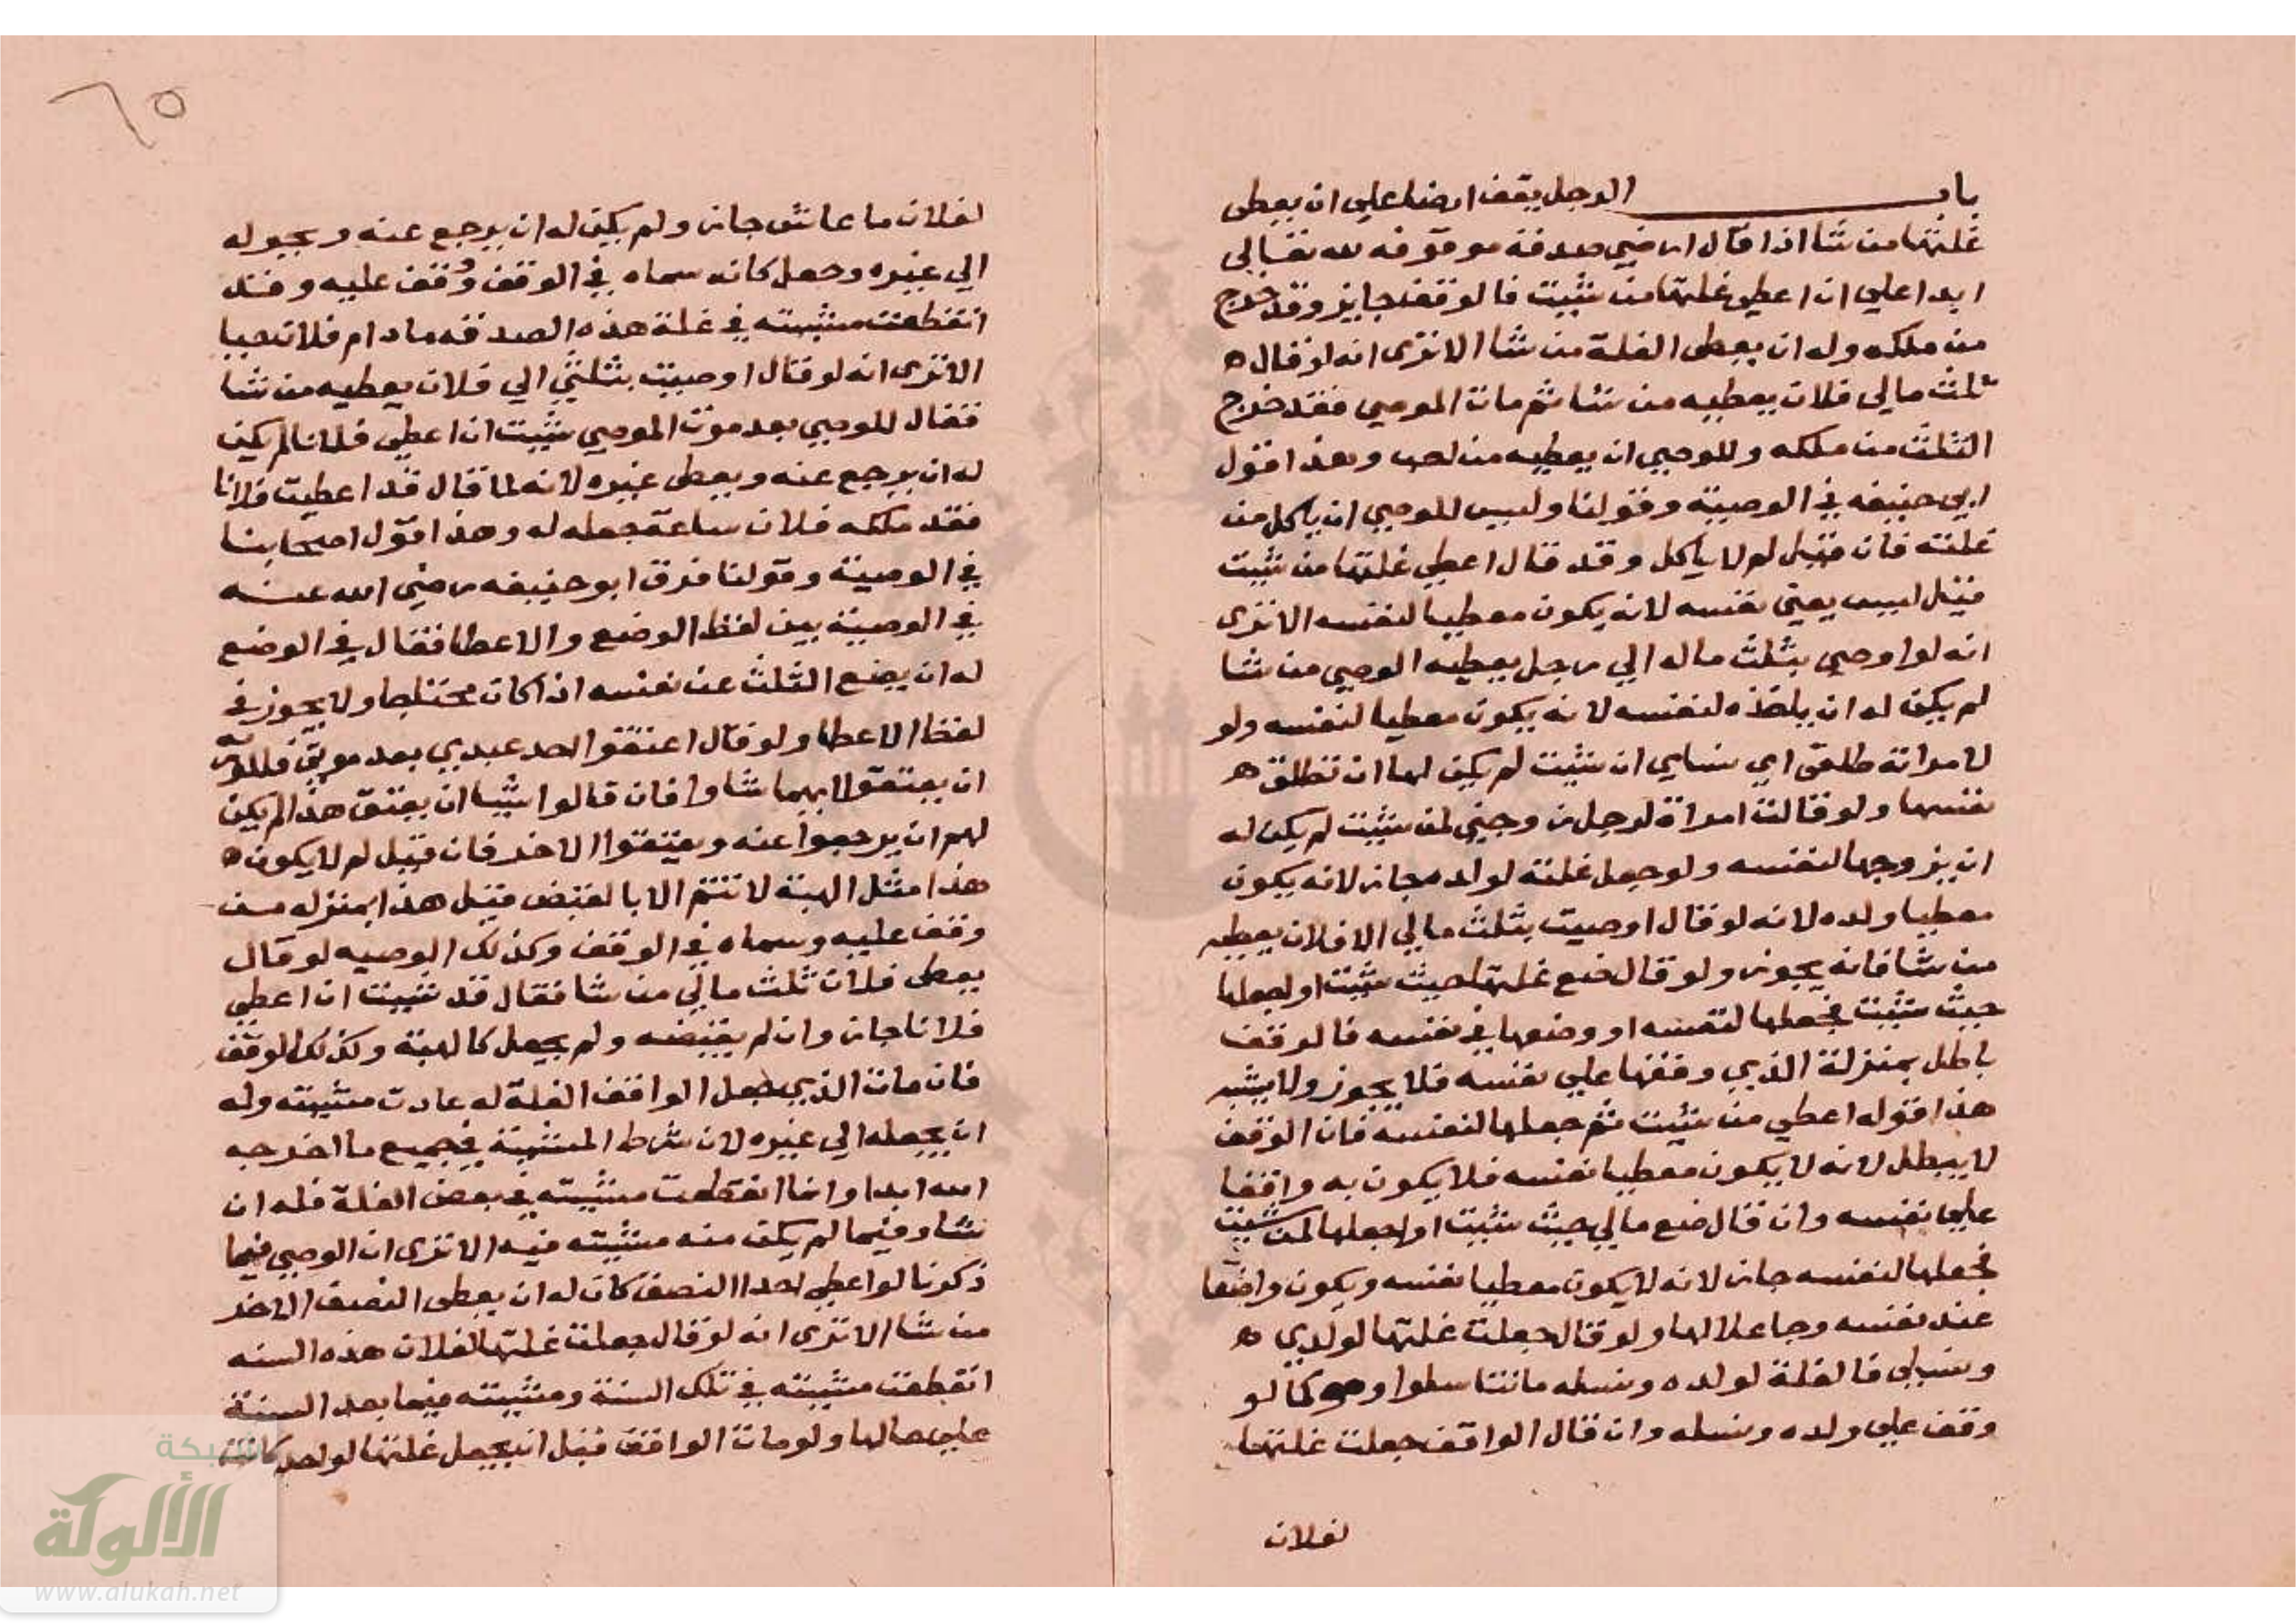 باب الرجل يقف ارضا علي ان يعطى
غلتها من شا اذا قال ارضي صدقة موقوفه لله تعالى
ابدا علي ان اعطي غلتها من شيت فالوقف جايز وقد خرج
من ملكه وله ان يعطى الغلة من شا الا ترى انه لو قال ه
ثلث مالي فلان يعطيه من شا ثم مات الموصي فقد خرج
الثلث من ملكه وللوصي ان يعطيه من احب وهذا قول
ابي حنيفه في الوصية وقولنا وليس للوصي ان ياكل من
غلته فان قيل لم لا ياكل وقد قال اعطي غلتها من شيت
قيل ليس يعني نفسه لانه يكون معطيا لنفسه الا ترى
انه لو اوصي بثلث ماله الي رجل يعطيه الوصي من شا
لم يكن له ان ياخذه لنفسه لانه يكون معطيا لنفسه ولو
لامراته طلقى اي نساي ان شيت لم يكن لها ان تطلق ه
نفسها ولو قالت امراة لرجل زوجني لمن شيت لم يكن له
ان يزوجها لنفسه ولو جعل غلته لولده جاز لانه يكون
معطيا ولده لانه لو قال اوصيت بثلث مالي الا فلان يعطيه
من شا فانه يجوز ولو قال ضع غلتها حيث شيت او اجعلها
حيث شيت فجعلها لنفسه او وضعها في نفسه فالوقف
باطل بمنزلة الذي وقفها علي نفسه فلا يجوز ولا يشبه
هذا قوله اعطي من شيت ثم جعلها لنفسه فان الوقف
لا يبطل لانه لا يكون معطيا نفسه فلا يكون به واقفا
علي نفسه وان قال ضع مالي حيث شيت او اجعلها لمن شيت
فجعلها لنفسه جاز لانه لا يكون معطيا نفسه ويكون واضعا
عند نفسه وجاعلا لها ولو قال جعلت غلتها لولدي ه
ونسلي فالغلة لولده ونسله ما تناسلوا وهو كما لو
وقف علي ولده ونسله وان قال الواقف جعلت غلتها
لفلان
٦٥
لفلان ما عاش جاز ولم يكن له ان يرجع عنه ويحوله
الي غيره وجعل كانه سماه في الوقف وقف عليه وقد
انقطعت مشيته في غلة هذه الصدقه ما دام فلان حيا
الا ترى انه لو قال اوصيت بثلثي الي فلان يعطيه من شا
فقال للوصي بعد موت الموصي شيت ان اعطي فلانا لم يكن
له ان يرجع عنه ويعطى غيره لانه لما قال قد اعطيت فلانا
فقد ملكه فلان ساعة جعله له وهذا قول اصحابنا
في الوصية وقولنا فرق ابو حنيفه رضي الله عنه
في الوصية بين لفظ الوضع والاعطا فقال في الوضع
له ان يضع الثلث عند نفسه اذا كان محتاجا ولا يجوز في
لفظ الاعطا ولو قال اعتقوا احد عبدي بعد موتي فللورثه
ان يعتقوا ايهما شاوا فان قالوا شينا ان يعتق هذا لم يكن
لهم ان يرجعوا عنه ويعتقوا الاخر فان قيل لم لا يكون ه
هذا مثل الهبة لا تتم الا بالقبض قيل هذا بمنزله من
وقف عليه وسماه في الوقف وكذلك الوصيه لو قال
يعطى فلان ثلث مالي من شا فقال قد شيت ان اعطي
فلانا جاز وان لم يقبضه ولم يجعل كالهبة وكذلك الوقف
فان مات الذي جعل الواقف الغلة له عادت مشيته وله
ان يجعله الي غيره لان شرط المشية في جميع ما اخرجه
الله ابدا وانما انقطعت مشيته في بعض الغلة فله ان
يشا فيما لم يكن منه مشيته فيه الا ترى ان الوصي فيما
ذكرنا لو اعطي احدا النصف كان له ان يعطى النصف الاخر
من شا الا ترى انه لو قال جعلت غلتها لفلان هذه السنه
انقطعت مشيته في تلك السنة ومشيته فيما بعد السنة
علي حالها ولو مات الواقف قبل ان يجعل غلتها لواحد كانت
شبكة
الألوكة
www.alukah.net